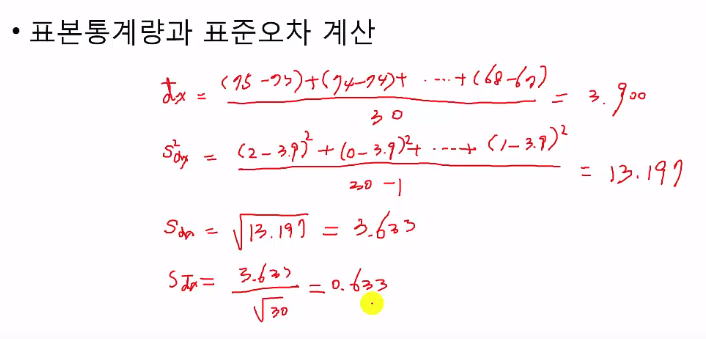 • 표본통계량과 표준오차 계산
d̄x = (75-73)+(74-74)+ ····+(68-67) / 30 = 3.900
S²dx = (2-3.9)²+(0-3.9)²+ ····+ (1-3.9)² / 30-1 = 13.197
Sdx = √13.197 = 3.633
Sd̄x = 3.633 / √30 = 0.633